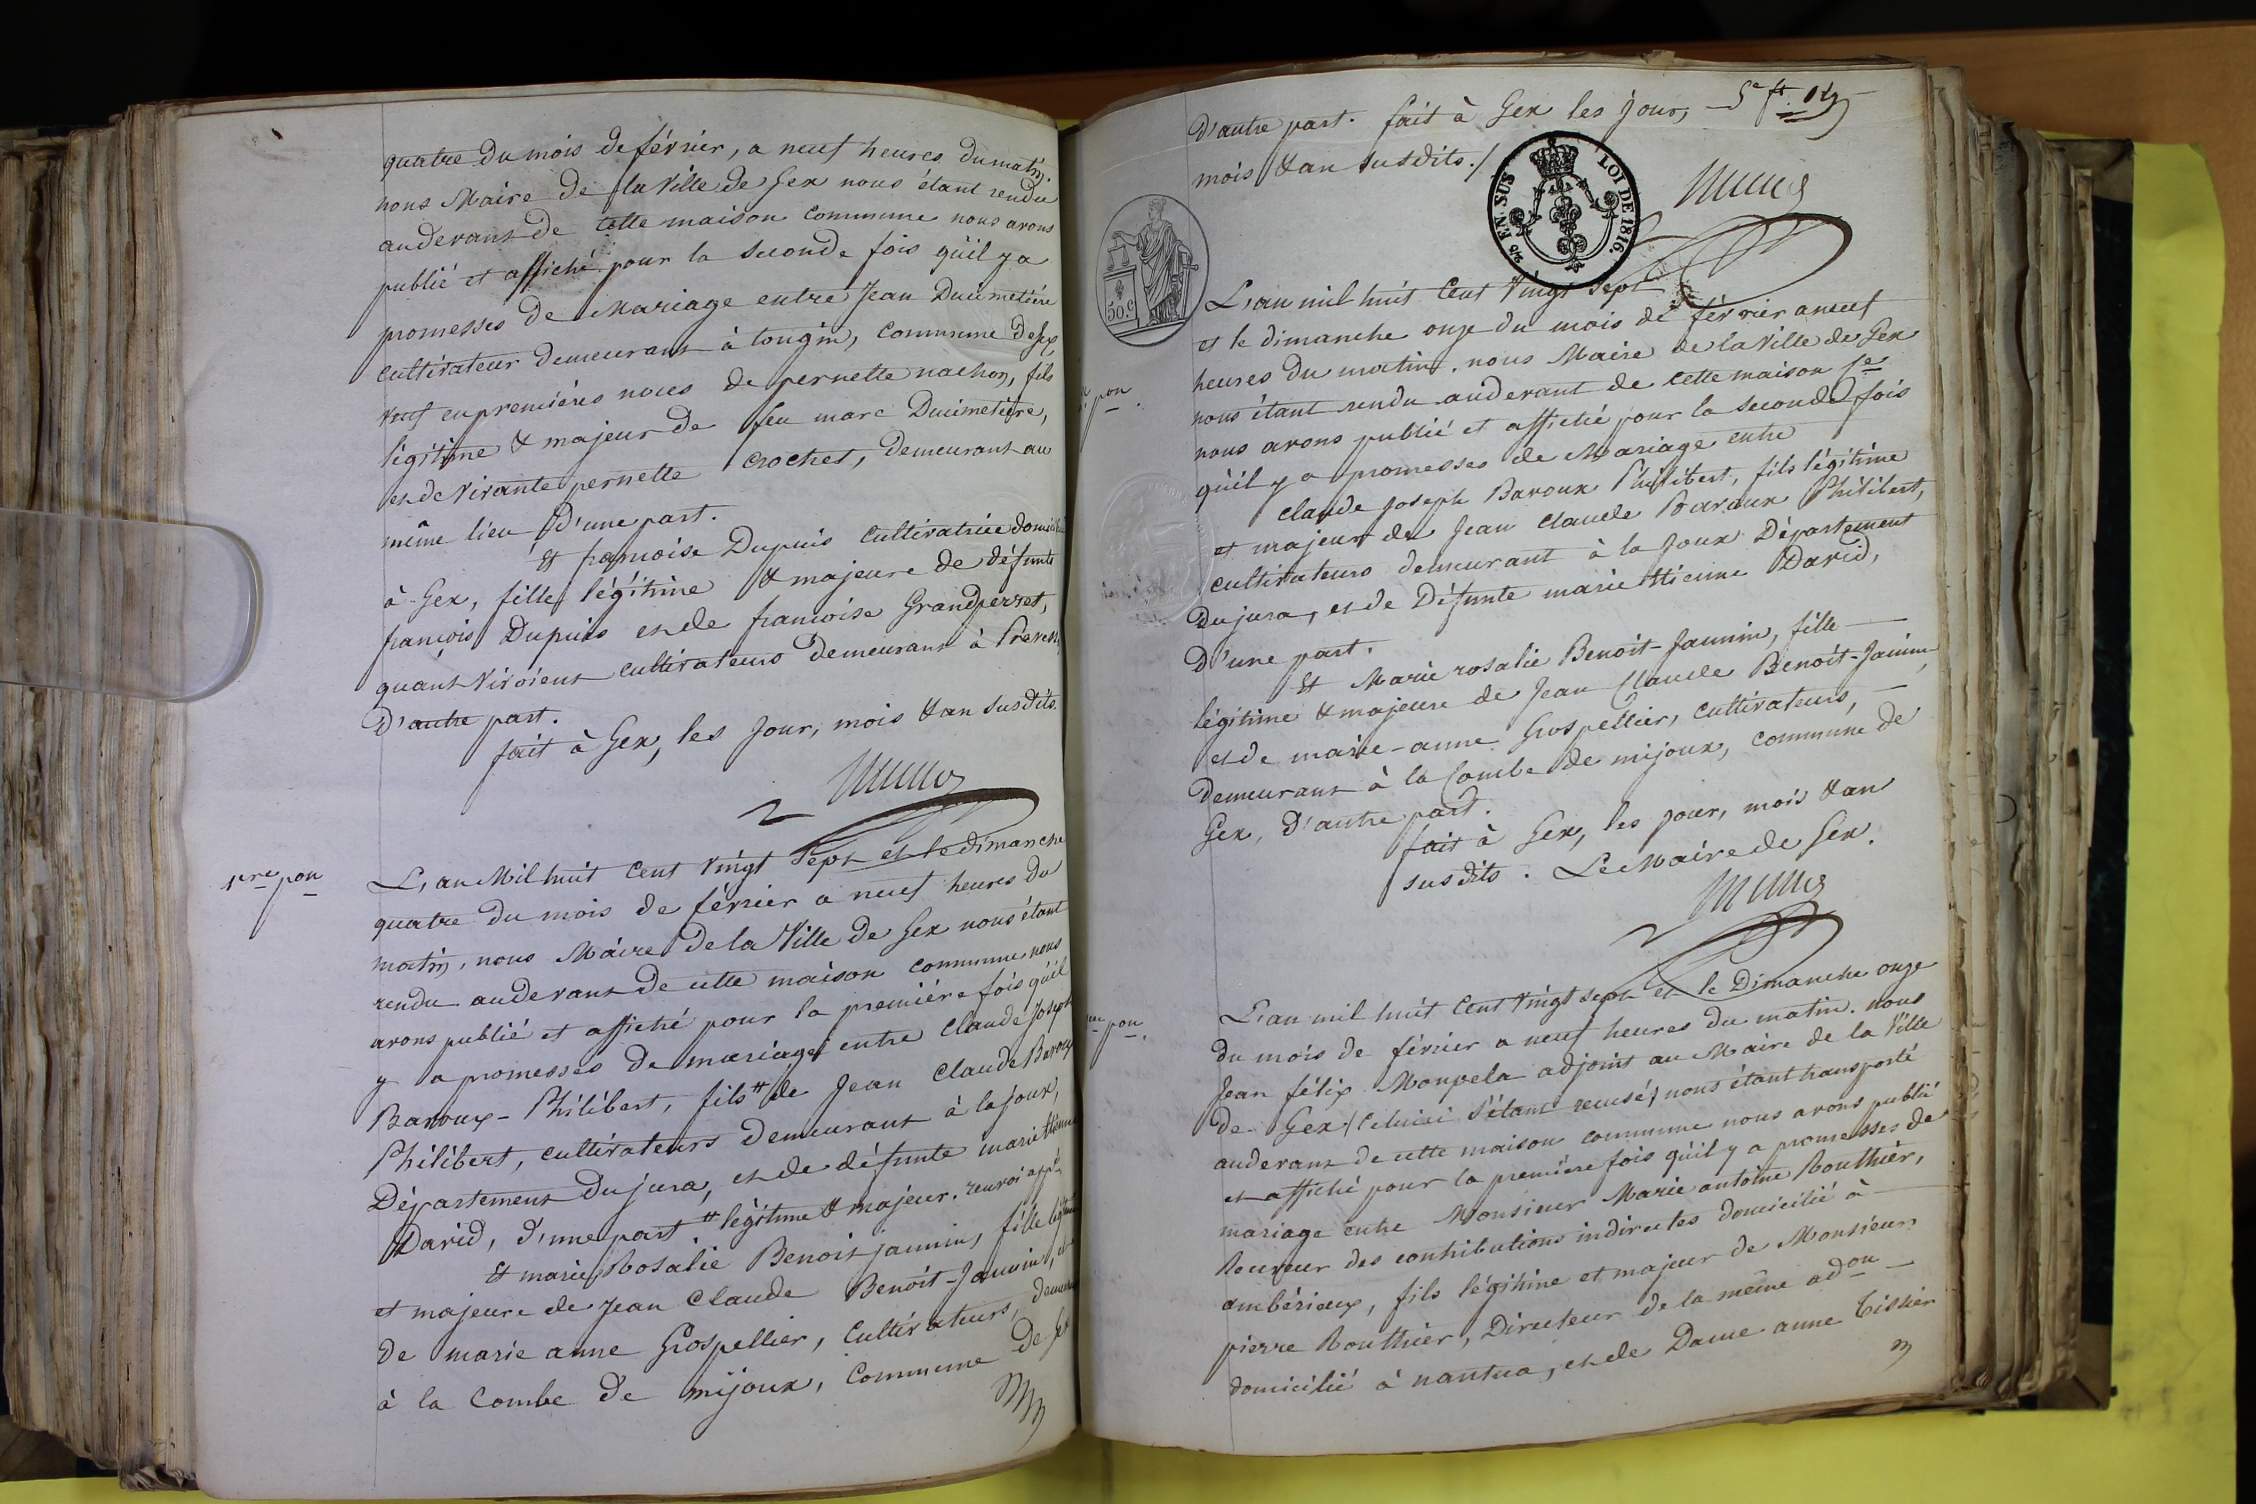 quatre du mois de février, a neuf heures du matin.
nous Maire de la Ville de Gex nous étant rendu
au devant de cette maison commune nous avons
publié et affiché pour la seconde fois qu'il y a
promesses de Mariage entre Jean Ducimetière
cultivateur demeurant à tougin, commune de Gex,
veuf en premières noces de pernette nachon, fils
légitime & majeur de feu marc Ducimetière,
et de vivante pernette Crochet, demeurant au
même lieu d'une part.
Et françoise Dupuis Cultivatrice
à Gex, fille légitime & majeure de défunts
françois Dupuis et de françoise Grandperret,
quant vivoient cultivateurs demeurant à
d'autre part.
fait à Gex, les jour, mois & an susdits.
1re pon
L'an Mil huit Cent Vingt Sept et le dimanche
quatre du mois de février a neuf heures du
matin, nous Maire de la Ville de Gex nous étant
rendu au devant de cette maison commune nous
avons publié et affiché pour la première fois qu'il
y a promesses de mariage entre Claude Joseph
Baroux-Philibert, fils # de Jean Claude Baroux
Philibert, cultivateurs demeurant à la joux,
Département du jura, et de défunte marie ttienne
David, d'une part # légitime & majeur. renvoi appé
Et marie Rosalie Benoit jannin, fille légitime
et majeure de Jean Claude Benoit-Jannin, et
de marie anne Grospellier, Cultivateurs,
à la Combe de mijoux, Commune de Gex
d'autre part. fait à Gex les jour,
mois & an susdits./
25 EN SUS LOI DE 1816.
50 C
L'an mil huit Cent Vingt Sept
et le dimanche onze du mois de février a neuf
heures du matin. nous Maire de la Ville de Gex
pon.
nous étant rendu au devant de cette maison Ce
nous avons publié et affiché pour la seconde fois
qu'il y a promesses de Mariage entre
Claude Joseph Baroux Philibert, fils légitime
et majeur de Jean Claude Baroux Philibert,
cultivateurs demeurant à la Joux Département
du jura, et de Défunte marie ttienne David,
d'une part.
Et Marie rosalie Benoit-Jannin, fille
légitime & majeure de Jean Claude Benoit-Jannin
et de marie-anne Grospellier, cultivateurs,
demeurant à la Combe de mijoux, commune de
Gex, d'autre part.
fait à Gex, les jour, mois & an
susdits. Le Maire de Gex.
L'an mil huit Cent Vingt sept et le Dimanche onze
pon.
du mois de février a neuf heures du matin. nous
Jean félix Monpela adjoint au Maire de la Ville
de Gex (celuici s'étant recusé) nous étant transporté
au devant de cette maison commune nous avons publié
et affiché pour la première fois qu'il y a promesses de
mariage entre Monsieur Marie antoine Routhier,
Receveur des contributions indirectes domicilié à
ambérieux, fils légitime et majeur de Monsieur
pierre Routhier, Directeur de la même adon
domicilié à nantua, et de Dame anne Tissier